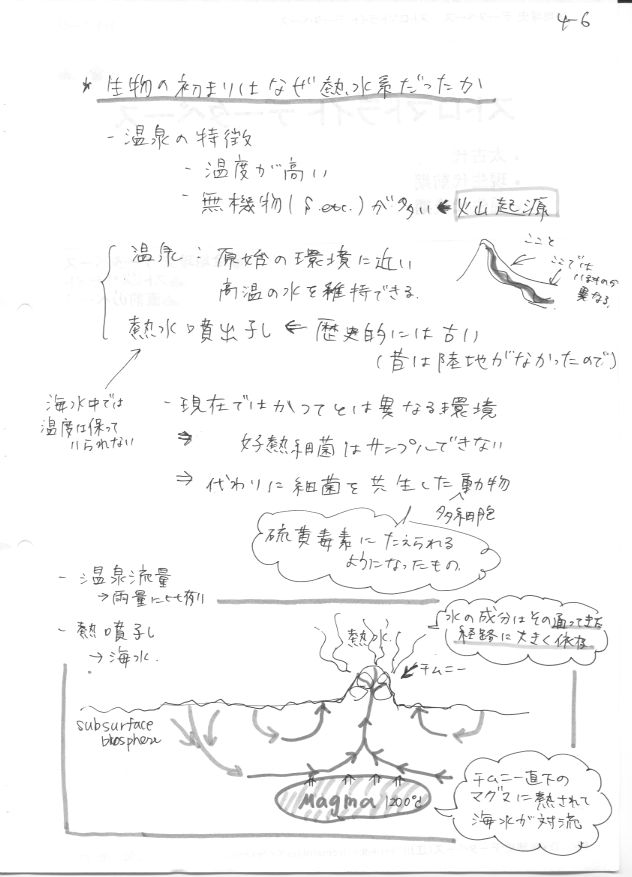 4-6
* 生物の初まりはなぜ熱水系だったか
- 温泉の特徴
- 温度が高い
- 無機物(S.etc.)が多い ← 火山起源
温泉: 原始の環境に近い
高温の水を維持できる.
ここと
ここでは
異なる.
熱水噴出孔 ← 歴史的には古い
(昔は陸地がなかったので)
海水中では
温度は保って
いられない
- 現在ではかつてとは異なる環境
⇒ 好熱細菌はサンプルできない
⇒ 代わりに細菌を共生した動物
多細胞
硫黄毒素にたえられる
ようになったもの.
- 温泉流量
→雨量にも
- 熱噴孔
→ 海水.
熱水
水の成分はその通ってきた
経路に大きく依存
チムニー
subsurface
biosphere
Magma 1200℃
チムニー直下の
マグマに熱されて
海水が対流